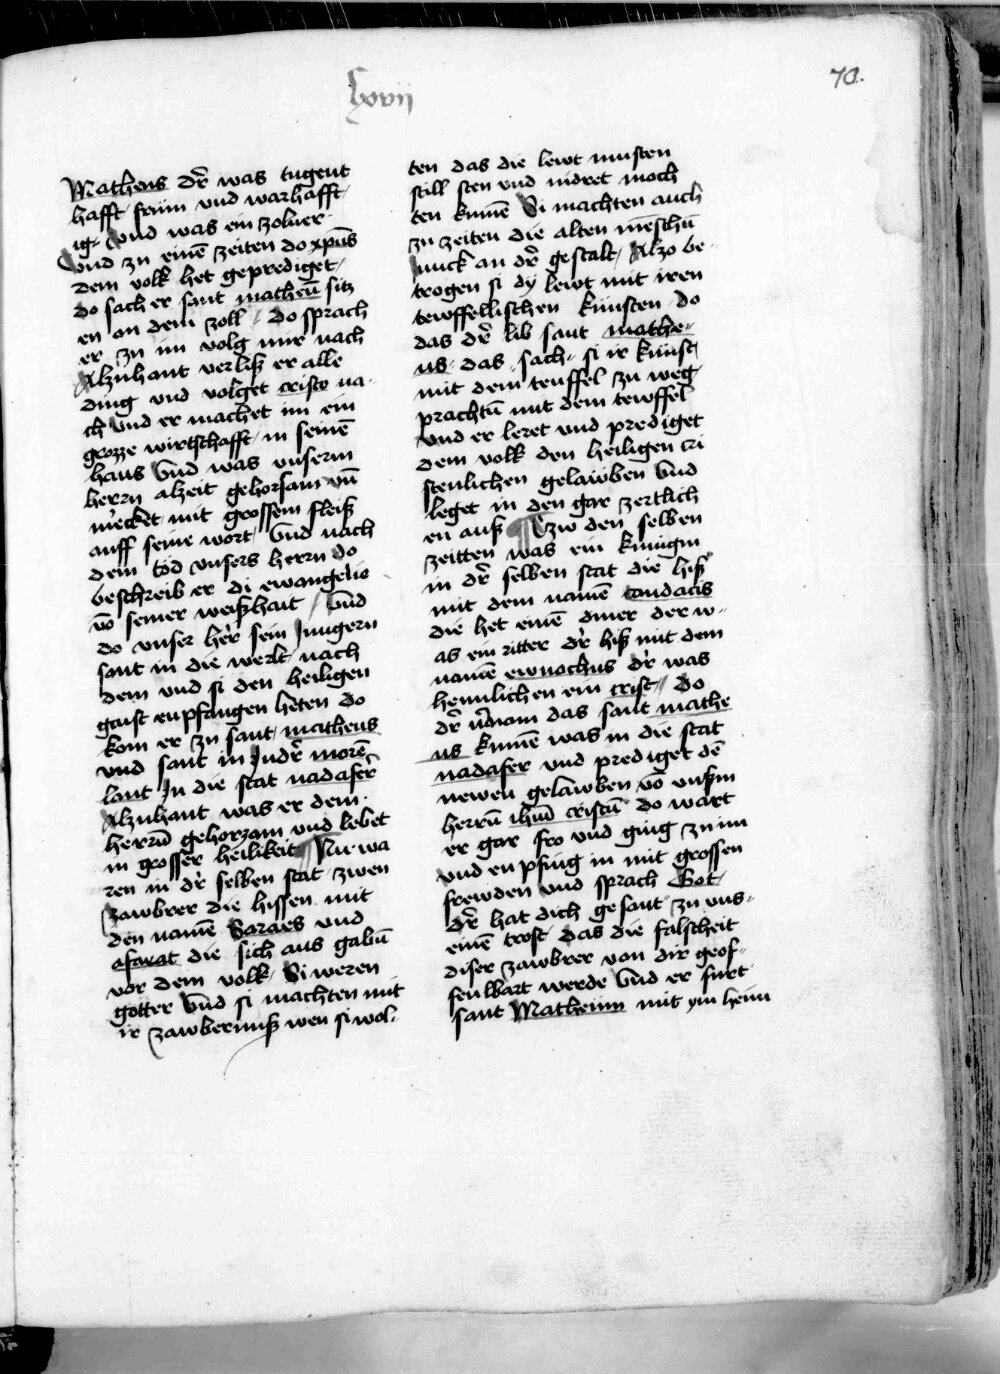 lxvij
70.
Matheus dr̄ was tugent
hafft frum und warhafft
ig⸗ Vnd was ein zolner
Vnd zu einē zeiten do xpūs
dem volk het geprediget
do sach er sant matheū sitz
en an dem zoll / do sprach
er zu im volg mir nach
Alzuhant verliß er alle
ding vnd volget cristo na⸗
ch Vnd er machet im ein
grozze wirtschafft in seinē
haus Vnd was vnserm
herrn alzeit gehorsam vn̄
mercket mit grossem fleiß
auff seine wort Vnd nach
dem tod vnsers herrn do
beschreib er di ewangelio
vō seiner weißhait / Vnd
do vnser her sein Jungern
sant in die werlt nach
dem vnd si den heiligen
gaist enpfangen heten do
kom er zu sant matheus
vnd sant in Jn dr̄ morē
lant Jn die stat nadafer
Alzuhant was er dem
herrn̄ gehorzam vnd lebet
in grosser heilikeit ¶ Nu wa
ren in dr̄ selben stat zwen
zawbrer die hissen mit
den namē Zaraes vnd
afaxat die sich aus gabn̄
vor dem volk Si weren
gotter Vnd si machten mit
ir zawbernuß wen si wol⸗
ten das die lewt musten
still sten vnd nidret moch
ten kumē Si machten auch
zu zeiten die alten menschn̄
Junck an dr̄ gestalt Alzo be⸗
trogen si dy lewt mit iren
tewffellischen kunsten do
das dr̄ lib sant mathe⸗
us das sach⸗ si ir kunst
mit dem teuffel zu weg
prachtn̄ mit dem tewffel
vnd er leret vnd prediget
dem volk den heiligen cri
stenlichen gelawben Vnd
leget in den gar zertlich
en auß ¶ Zw den selben
zeitten was ein kunigin
in dr̄ selben stat die hiß
mit dem namē candacis
die het einē diner der w⸗
as ein ritter dr̄ hiß mit dem
namē ewnochus dr̄ was
hemlichen ein crist // do
dr̄ v̄nam das sant mathe
us kumē was in die stat
nadafer vnd prediget dē
newen gelawben vō vnßm
herrn̄ ihm̄ cristū do wart
er gar fro vnd ging zu im
vnd enpfing in mit grossen
frewden vnd sprach Got
dr̄ hat dich gesant zu vns⸗
einē trost das die falscheit
diser zawbrer von dir geof⸗
fenbart werde Vnd er furt
sant Matheum mit ym heim